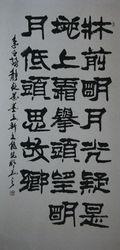 牀前明月光疑是
地上霜舉頭望明
月低頭思故鄉
李白詩靜夜思